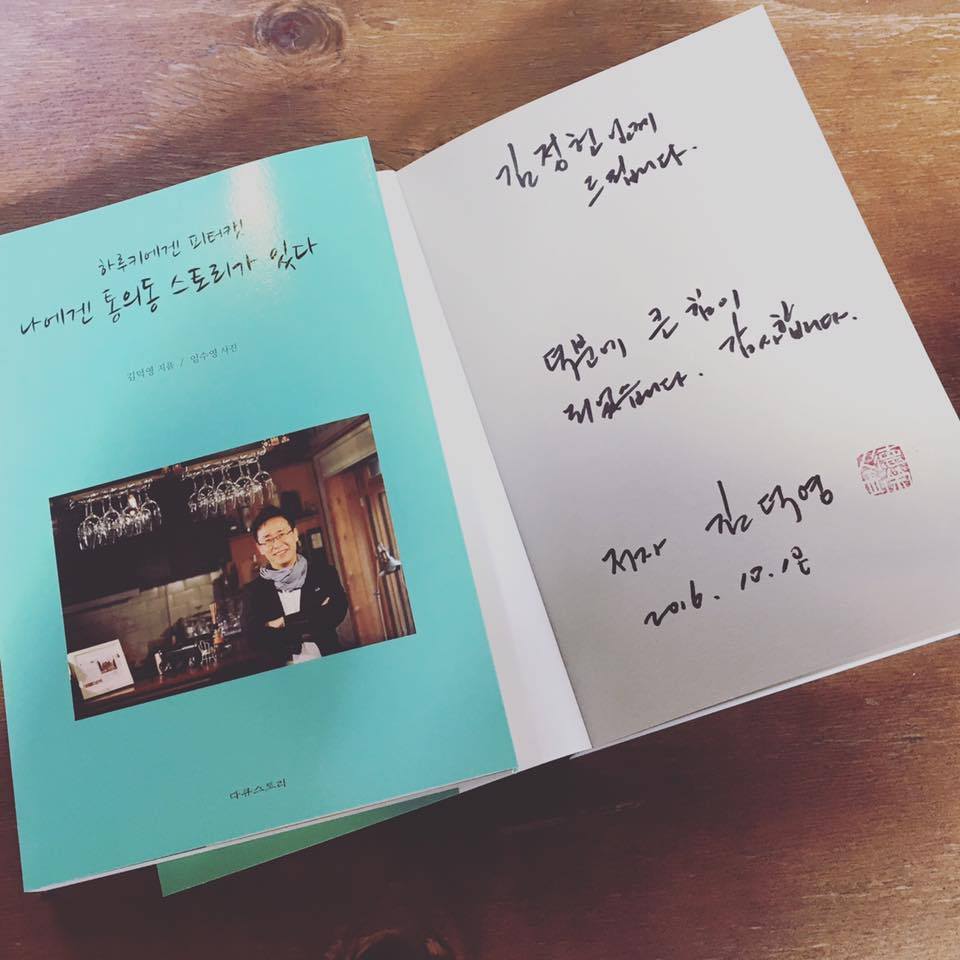 하루키에겐 피터캣
나에겐 통의동 스토리가 있다
김덕영 지음 / 임수영 사진
다큐스토리
김정현님께
드립니다.
덕분에 큰 힘이
되었습니다. 감사합니다.
저자 김덕영
2016. 10.